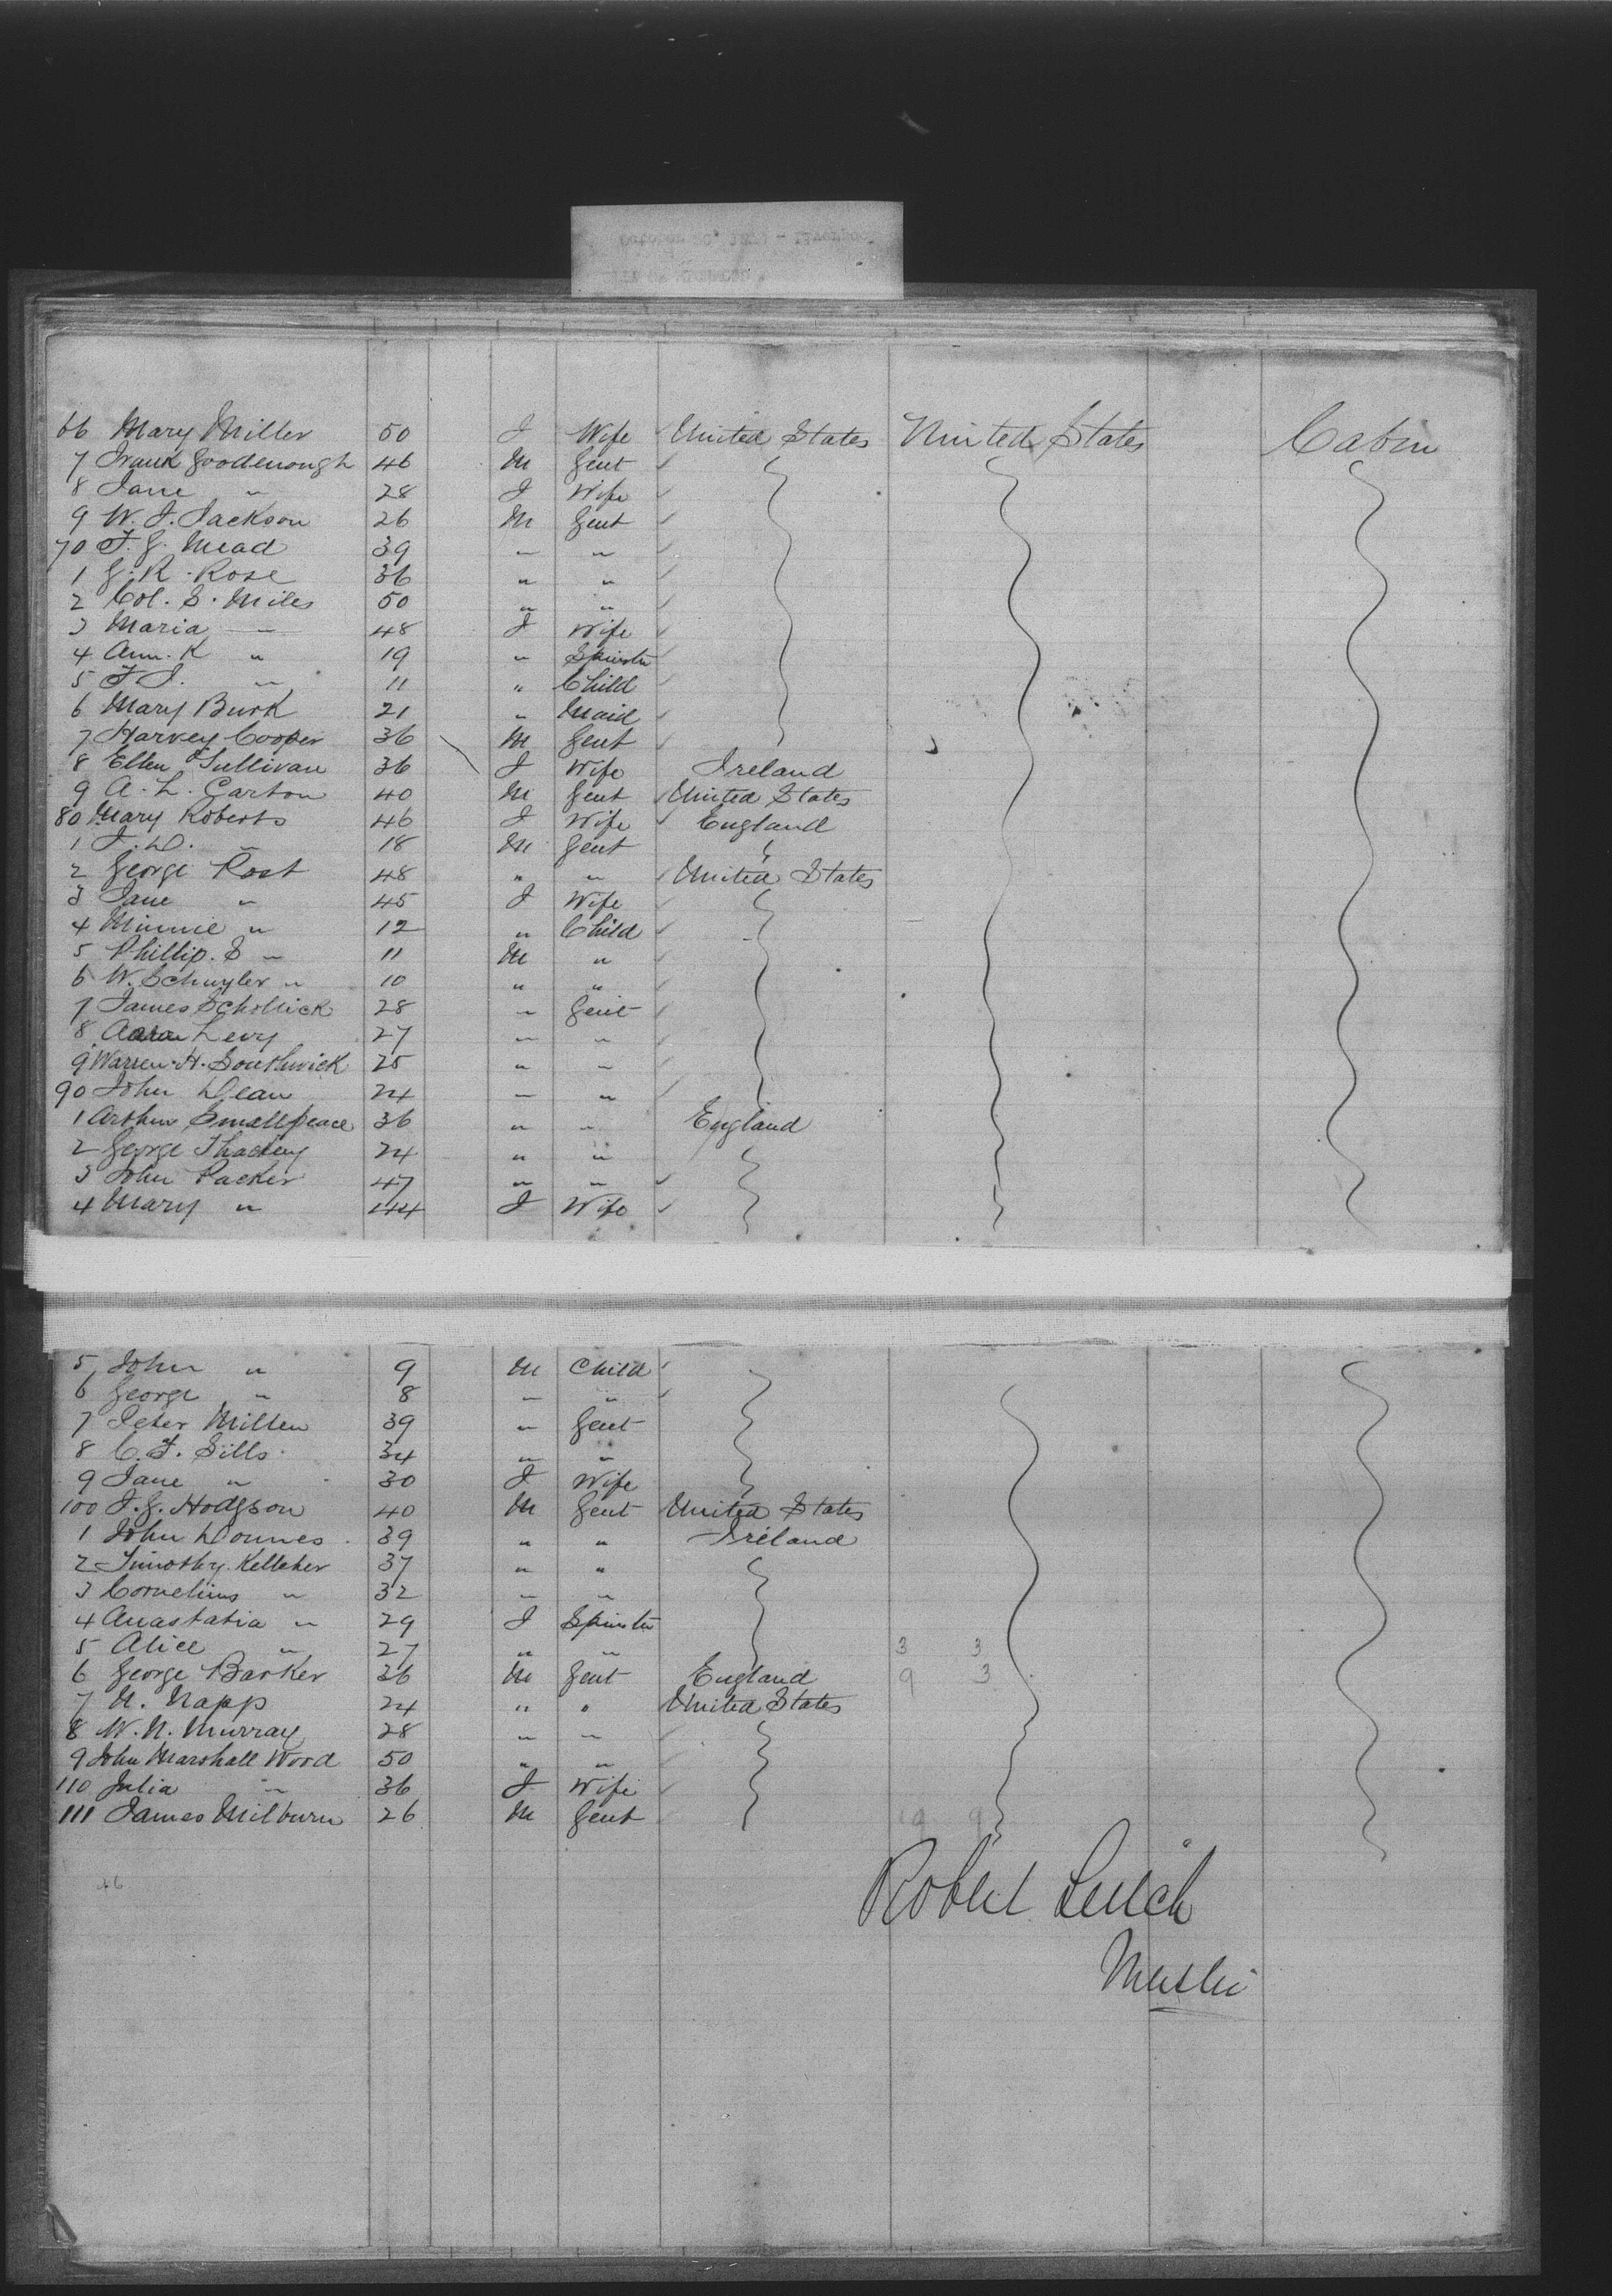 66 Mary Miller 50 F Wife United States United States Cabin
7 Frank Goodenough 46 M Gent
8 Jane " 28 F Wife
9 W. F. Jackson 26 M Gent
70 F. G. Mead 39 " "
1 G. R. Rose 36 " "
2 Col. S. Miles 50 " "
3 Maria — 48 F Wife
4 Ann. K " 19 " Spinster
5 F J. " 11 " Child
6 Mary Burk 21 " Maid
7 Harvey Cooper 36 M Gent
8 Ellen O'Sullivan 36 F Wife Ireland
9 A. L. Carton 40 M Gent United States
80 Mary Roberts 46 F Wife England
1 J. D. " 18 M Gent
2 George Post 48 " " United States
3 Jane " 45 F Wife
4 Minnie " 12 " Child
5 Phillip. S " 11 M "
6 W. Schuyler " 10 " "
7 James Schollick 28 " Gent
8 Levy 27 " "
9 Warren H. Southwick 25 " "
90 John Dean 24 " "
1 Arthur Smallpeace 36 " " England
2 George 24 " "
3 John Packer 47 " "
4 Mary " 44 F Wife
5 John " 9 M Child
6 George " 8 " "
7 Peter Millen 39 " Gent
8 C. F. Sills 34 " "
9 Jane " 30 F Wife
100 J. G. Hodgson 40 M Gent United States
1 John Downes 39 " " Ireland
2 Timothy Kelleher 37 " "
3 Cornelius " 32 " "
4 Anastatia " 29 F Spinster
5 Alice " 27 " " 3 3
6 George Barker 36 M Gent England 9 3
7 N. Napp 24 " " United States
8 W. N. Murray 28 " "
9 John Marshall Wood 50 " "
110 Julia " 36 F Wife
111 James Milburn 26 M Gent
Robert Leitch
Master